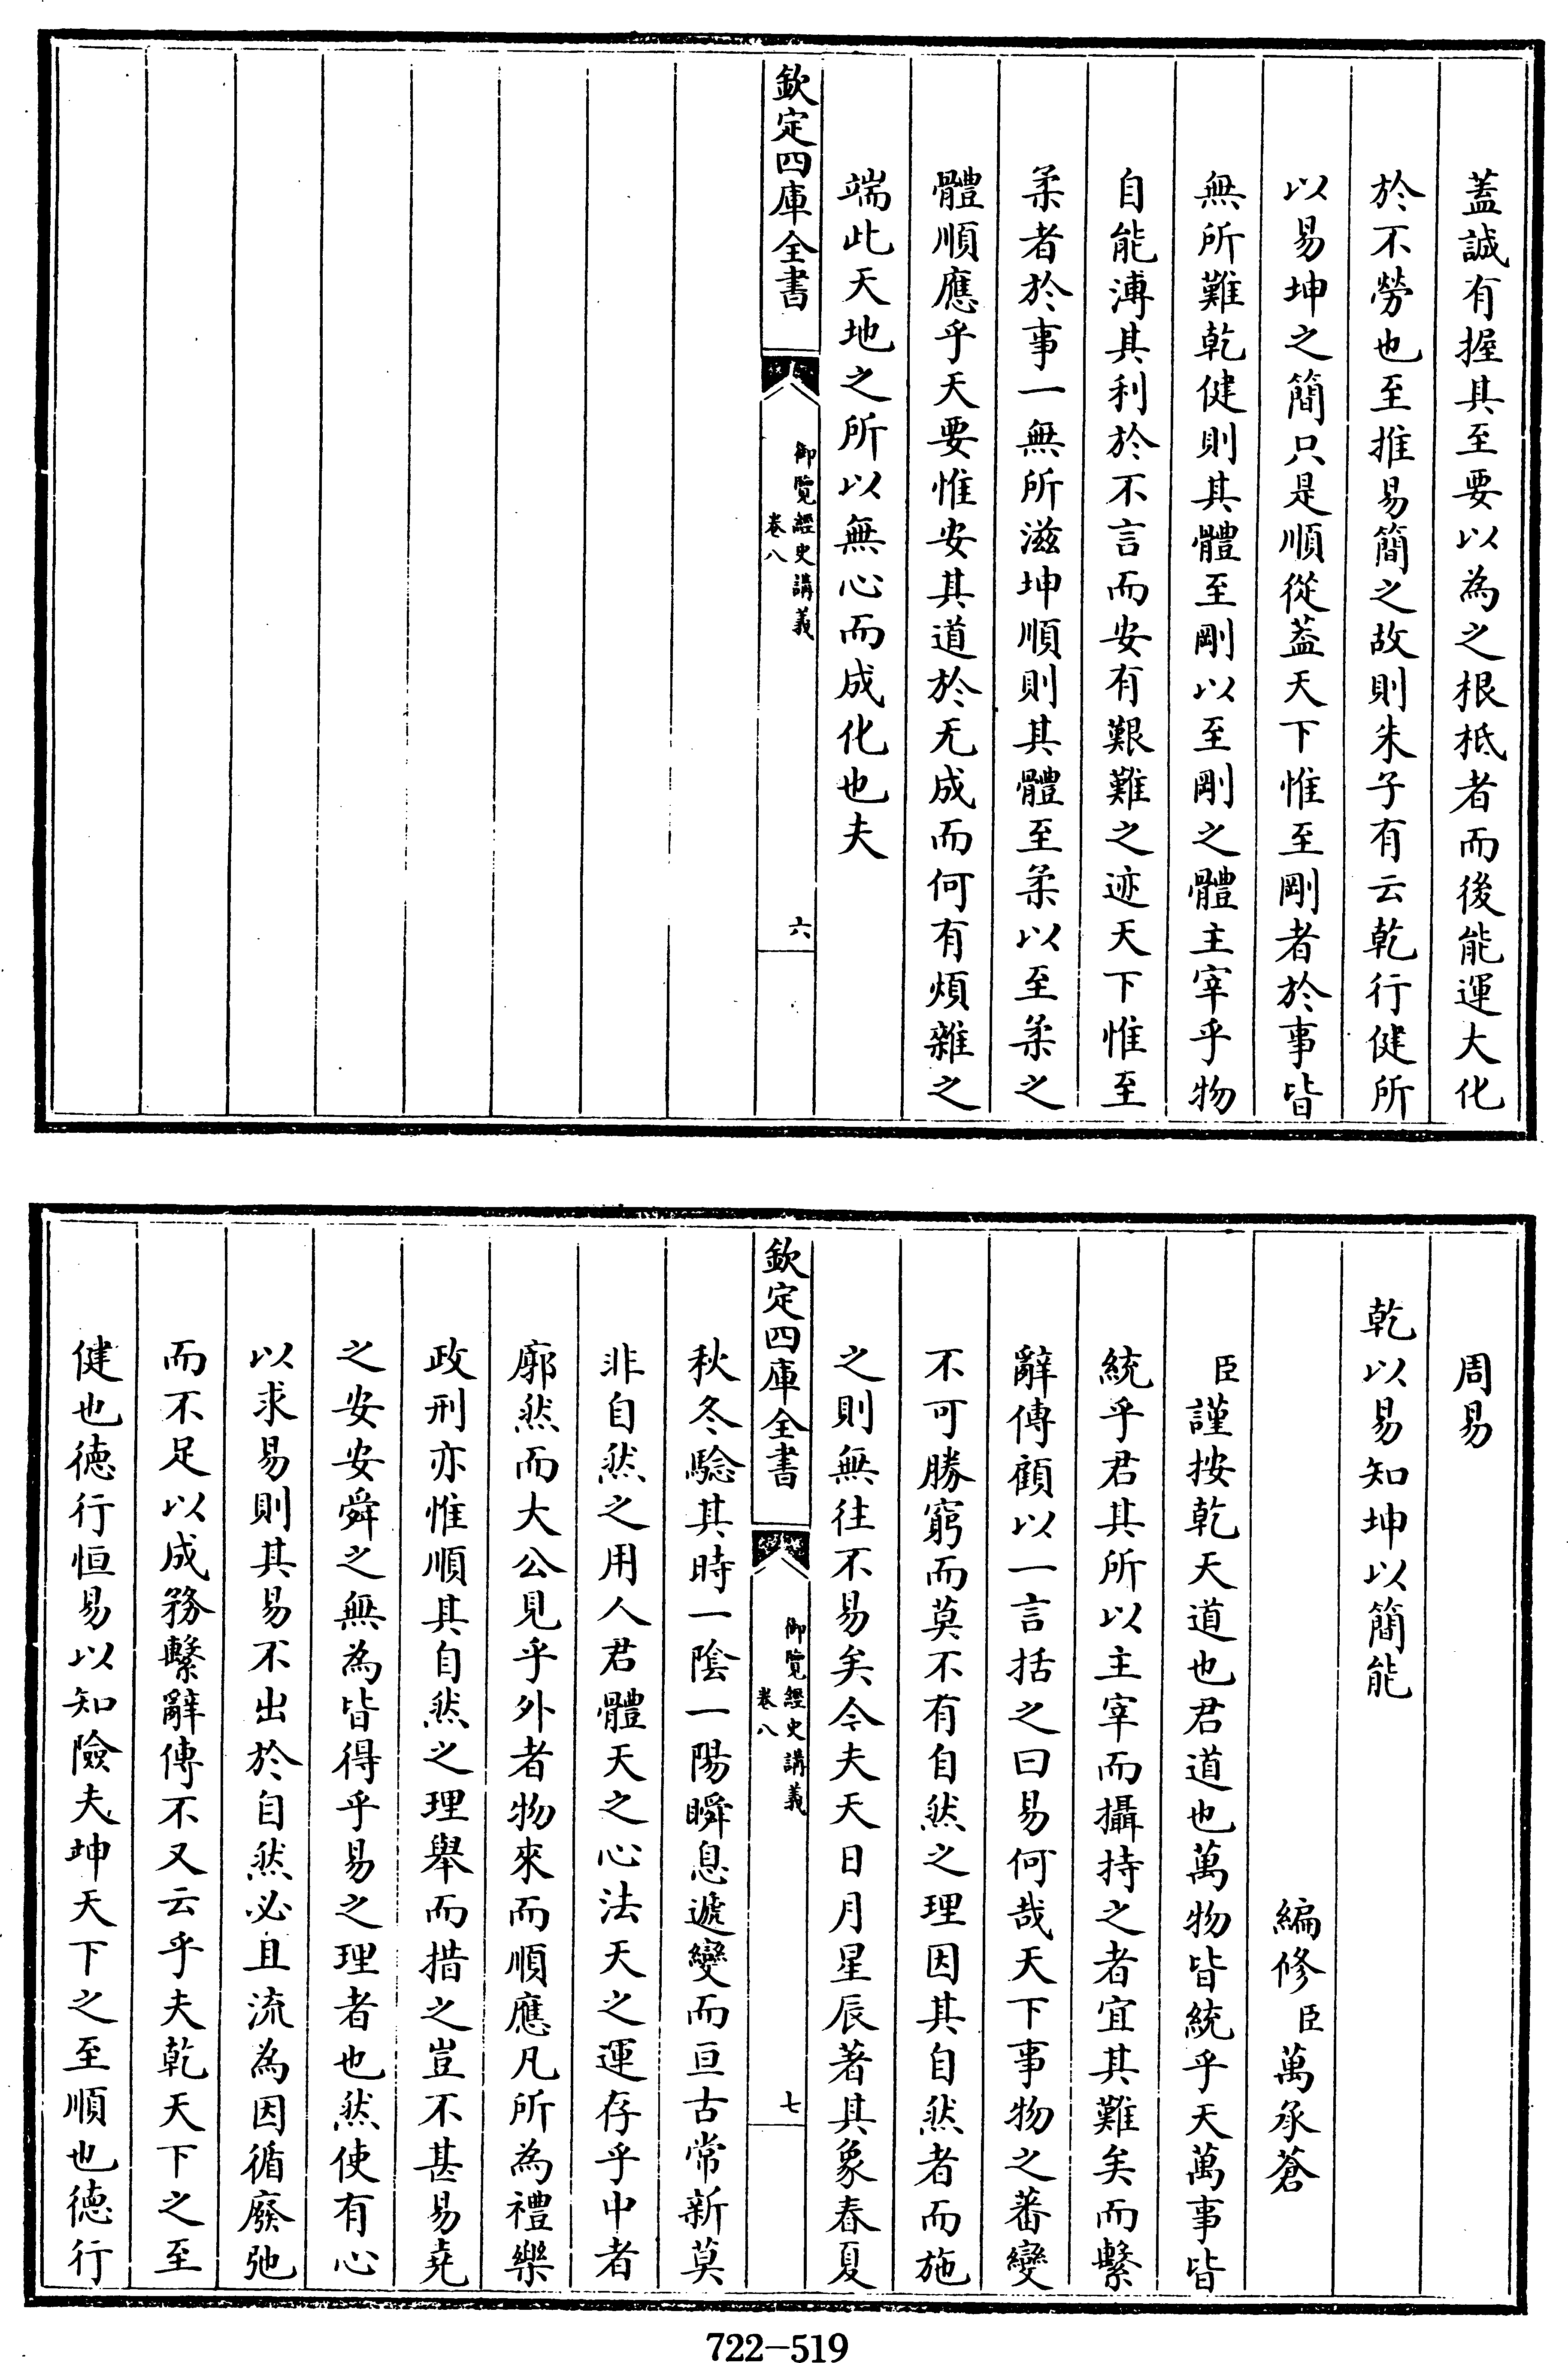 蓋誠有握其至要以為之根柢者而後能運大化
於不勞也至推易簡之故則朱子有云乾行健所
以易坤之簡只是順從蓋天下惟至剛者於事皆
無所難乾健則其體至剛以至剛之體主宰乎物
自能溥其利於不言而安有艱難之迹天下惟至
柔者於事一無所滋坤順則其體至柔以至柔之
體順應乎天要惟安其道於无成而何有煩雜之
端此天地之所以無心而成化也夫
欽定四庫全書
御覽經史講義
卷八
六
周易
乾以易知坤以簡能
編修臣萬承蒼
臣謹按乾天道也君道也萬物皆統乎天萬事皆
統乎君其所以主宰而攝持之者宜其難矣而繫
辭傳顧以一言括之曰易何哉天下事物之蕃變
不可勝窮而莫不有自然之理因其自然者而施
之則無往不易矣今夫天日月星辰著其象春夏
欽定四庫全書
御覽經史講義
卷八
七
秋冬驗其時一陰一陽瞬息遞變而亘古常新莫
非自然之用人君體天之心法天之運存乎中者
廓然而大公見乎外者物來而順應凡所為禮樂
政刑亦惟順其自然之理舉而措之豈不甚易堯
之安安舜之無為皆得乎易之理者也然使有心
以求易則其易不出於自然必且流為因循廢弛
而不足以成務繫辭傳不又云乎夫乾天下之至
健也德行恒易以知險夫坤天下之至順也德行
722-519